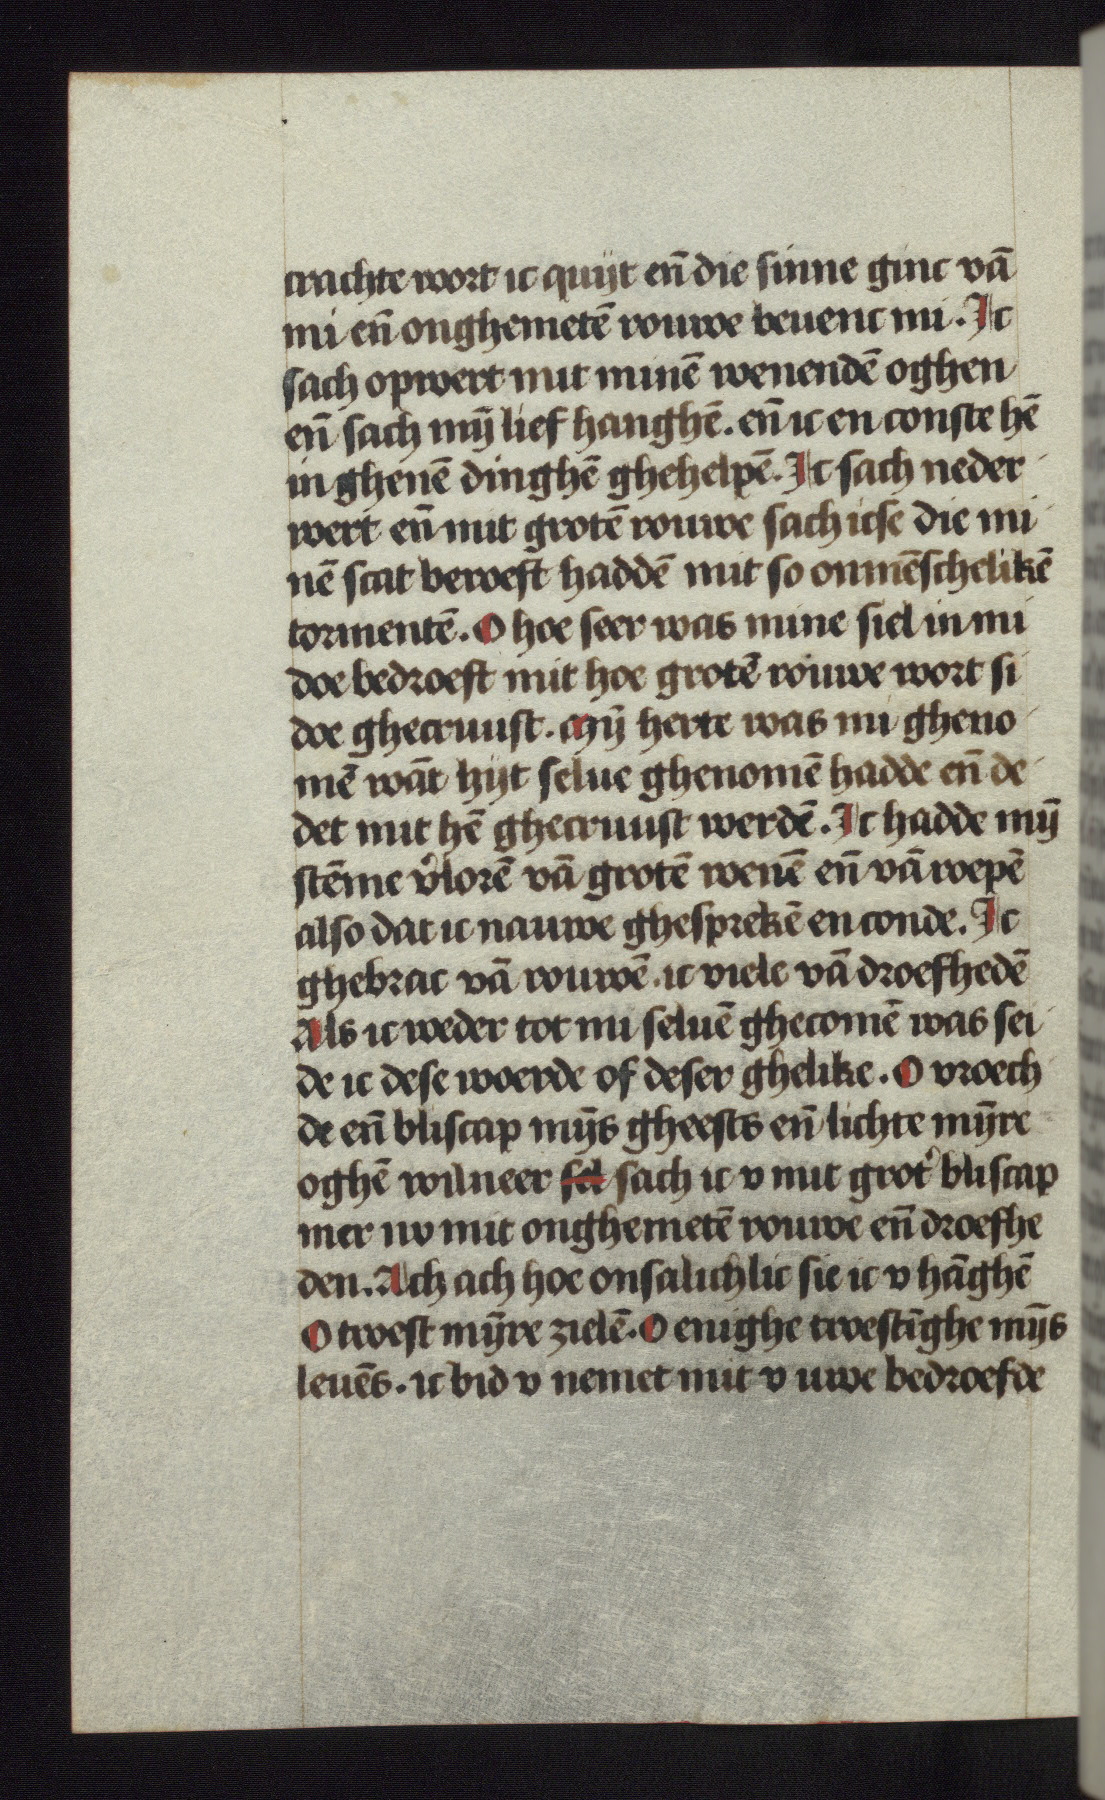 crachte wort ic quyt en̄ die sinne ginc vā
mi en̄ onghemetē rouwe beuenc mi. Ic
sach opwert mit minē wenendē oghen
en̄ sach mȳ lief hanghē. en̄ ic en conste hē
in ghenē dinghē ghehelpē. Ic sach neder
wert en̄ mit grotē rouwe sach icse die mi
nē scat beroeft haddē mit so onmēschelikē
tormentē. O hoe seer was mine siel in mi
doe bedroeft mit hoe grotē rouwe wort si
doe ghecruust. Mȳ herte was mi gheno
mē wāt hijt selue ghenomē hadde en̄ de
det mit hē ghecruust werdē. Ic hadde mȳ
stēme v̉lorē vā grotē wenē en̄ vā roepē
also dat ic nauwe ghesprekē en conde. Ic
ghebrac vā rouwē. ic viele vā droefhedē
Als ic weder tot mi seluē ghecomē was sei
de ic dese woerde of deser ghelike. O vroech
de en̄ bliscap mȳs gheests en̄ lichte mȳre
oghē wilneer sel sach ic v mit grot̉ bliscap
mer nv mit onghemetē rouwe en̄ droefhe
den. Ach ach hoe onsalichlic sie ic v hāghē
O troest mȳre zielē. O enighe troestīghe mȳs
leuēs. ic bid v nemet mit v uwe bedroefde